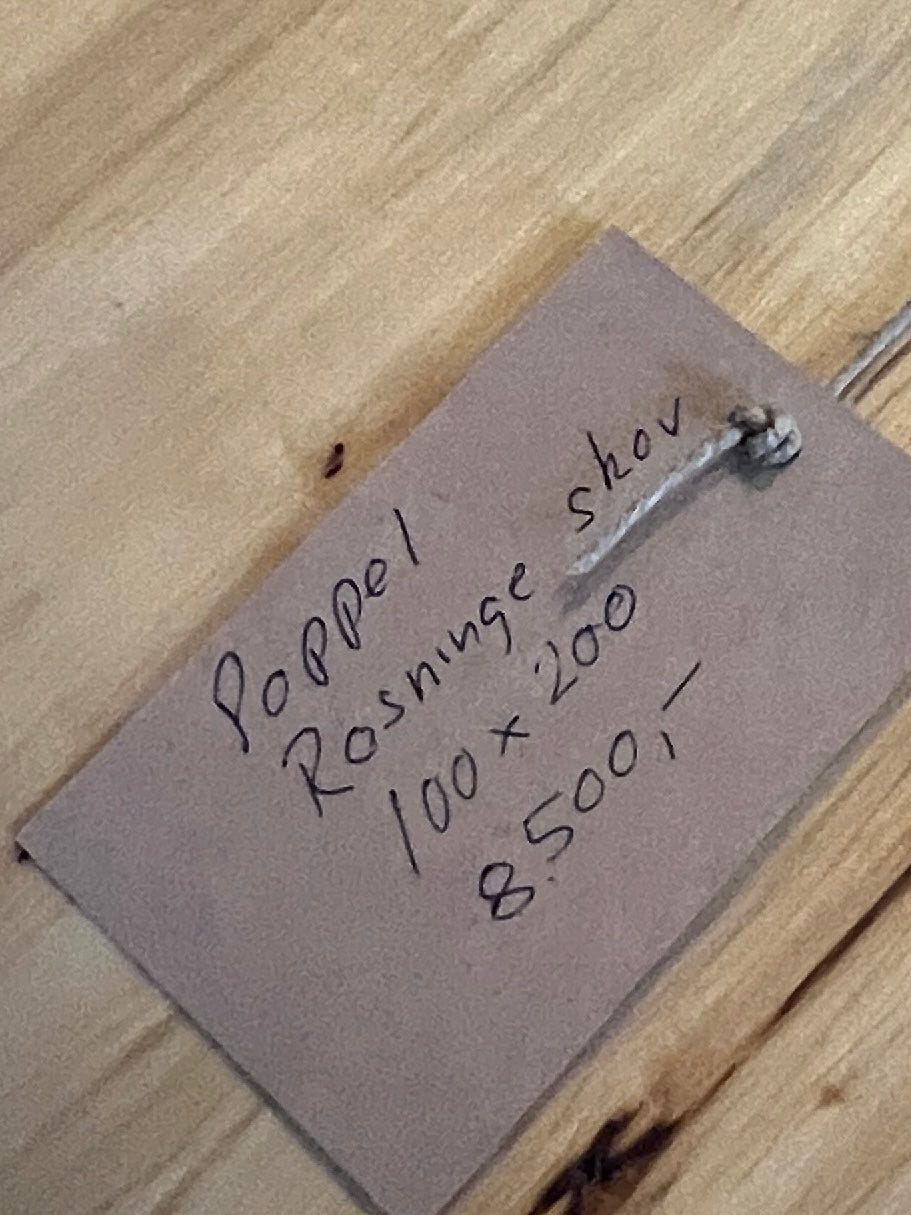 Poppel
Rosninge skov
100 x 200
8.500,-